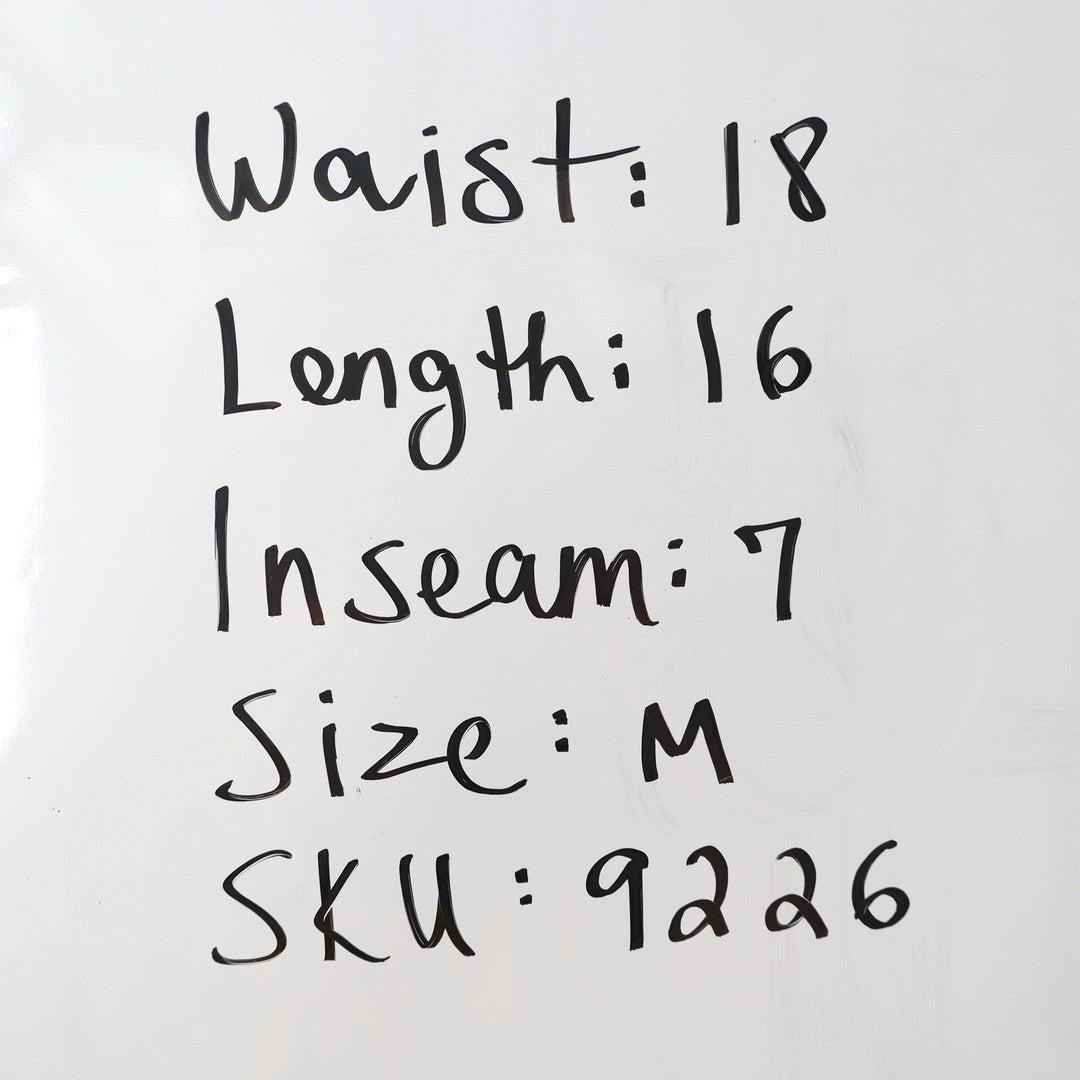 Waist: 18
Length: 16
Inseam: 7
Size: M
SKU: 9226